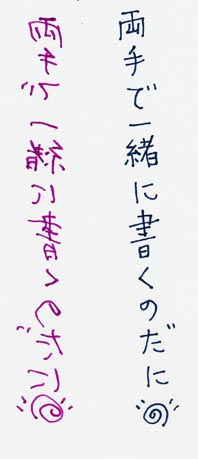 両手で一緒に書くのだに
両手で一緒に書くのだに